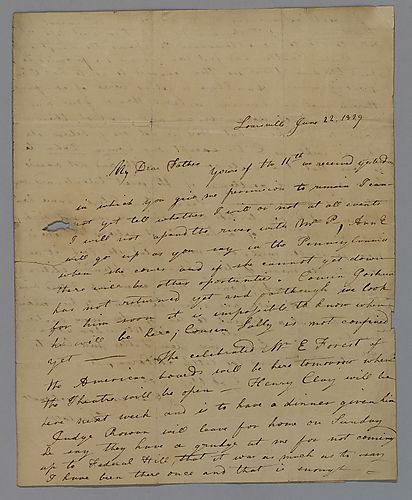 Louisville June 22, 1829
My Dear Father Yours of the 11th we received yesterday
in which you give me permission to remain I can
not yet tell whether I will or not at all events
I will not the river with Mr P, Ann E
will go up as you say in the Pennsylvania
when she comes and if she cannot get down
there will be other opportunities. Cousin Goshun
has not returned yet and although we look
for him soon it is impossible to know when
he will be here; Cousin Sally is not confined
yet — The celebrated Mr E Forest of
the American boards will be here tomorrow when
the Theatre will be open — Henry Clay will be
here next week and is to have a dinner given him
Judge Rowan will leave for home on Sunday
he say they have a grudge at me for not coming
up to Federal Hill that it was as much as to say
I have been there once and that is enough —